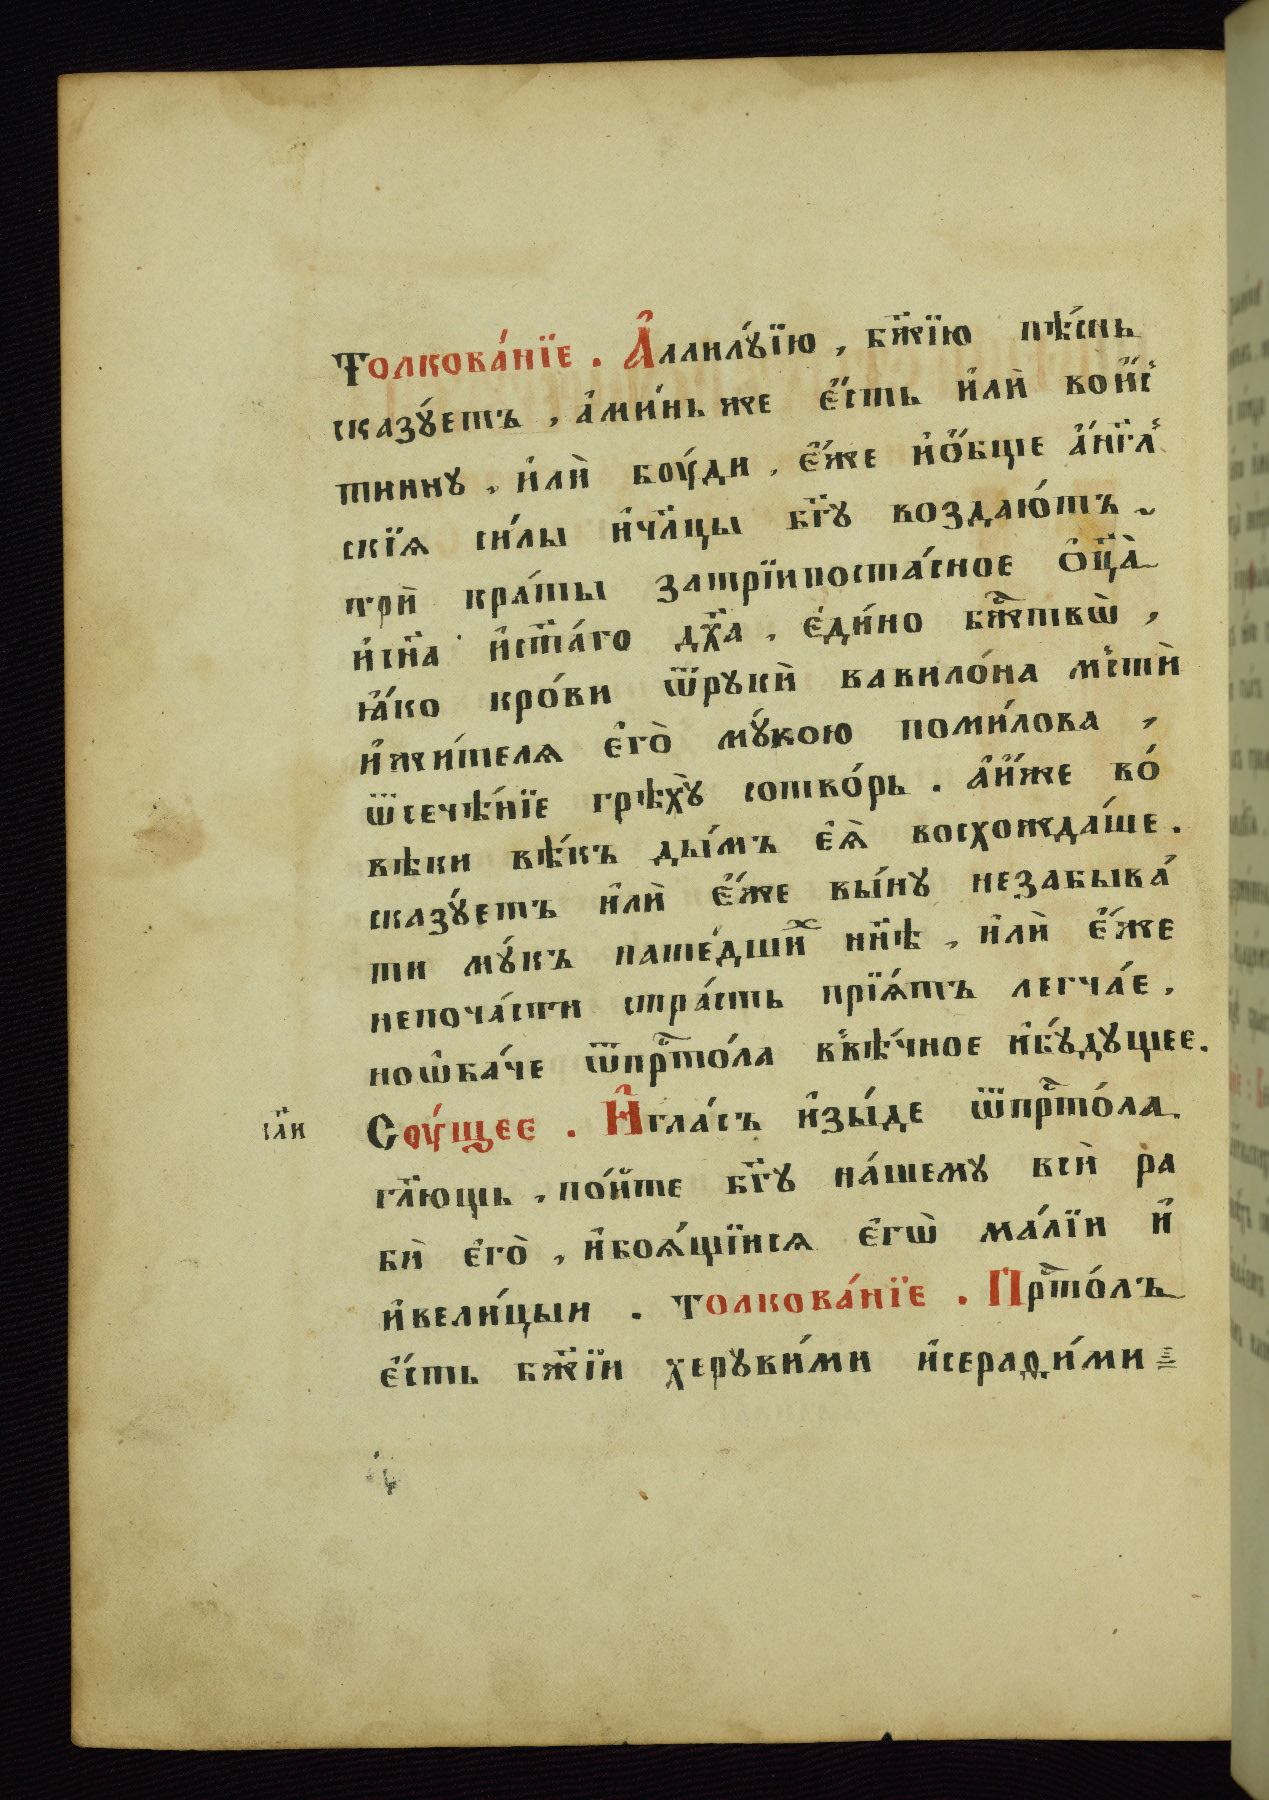 Толкова́нїе . А҆ллилꙋ́їю , бж҃їю пѣ́снь
сказꙋ́етъ , а҆ми́нь же є҆́сть и҆лѝ вои́с
тиннꙋ , и҆лѝ боу́ди , є҆́же и҆ѻ҆́бще а҆́нг҃л
скїѧ си́лы и҆чл҃цы бг҃ꙋ воздаю́тъ
трѝ кра́ты затрїипоста́сное ѻ҆ц҃а̀
и҆сн҃а и҆ст҃а́го дх҃а , є҆ди́но бж҃ствѡ̀ ,
ꙗ҆́ко кро́ви ѿрꙋкѝ вавило́на мстѝ
и҆жи́телѧ є҆гѡ̀ мꙋ́кою поми́лова ,
ѿсечѣ́нїе грѣхꙋ̀ сотво́рь . а҆и҆́же во́
вѣки вѣ́къ ды́мъ є҆ѧ̀ восхожда́ше .
сказꙋ́етъ и҆лѝ є҆́же вы́нꙋ незабыва́
ти мꙋ́къ наше́дшиⷯ нн҃ѣ , и҆лѝ є҆́же
непоча́сти стра́сть прїѧ́тъ легча́е ,
ноѡ҆ба́че ѿпрⷭ҇то́ла в̾вѣ́чное и҆бꙋ́дꙋщее .
сл҃и Соу́щее . И҆гла́съ и҆зы́де ѿпрⷭ҇то́ла .
гл҃ющь , по́йте бг҃ꙋ на́шемꙋ всѝ ра
бѝ є҆го̀ , и҆боѧ́щїисѧ є҆гѡ̀ ма́лїи и҆
и҆вели́цыи . Толкова́нїе . Прⷭ҇то́лъ
є҆́сть бж҃їи херꙋви́ми и҆серафи́ми